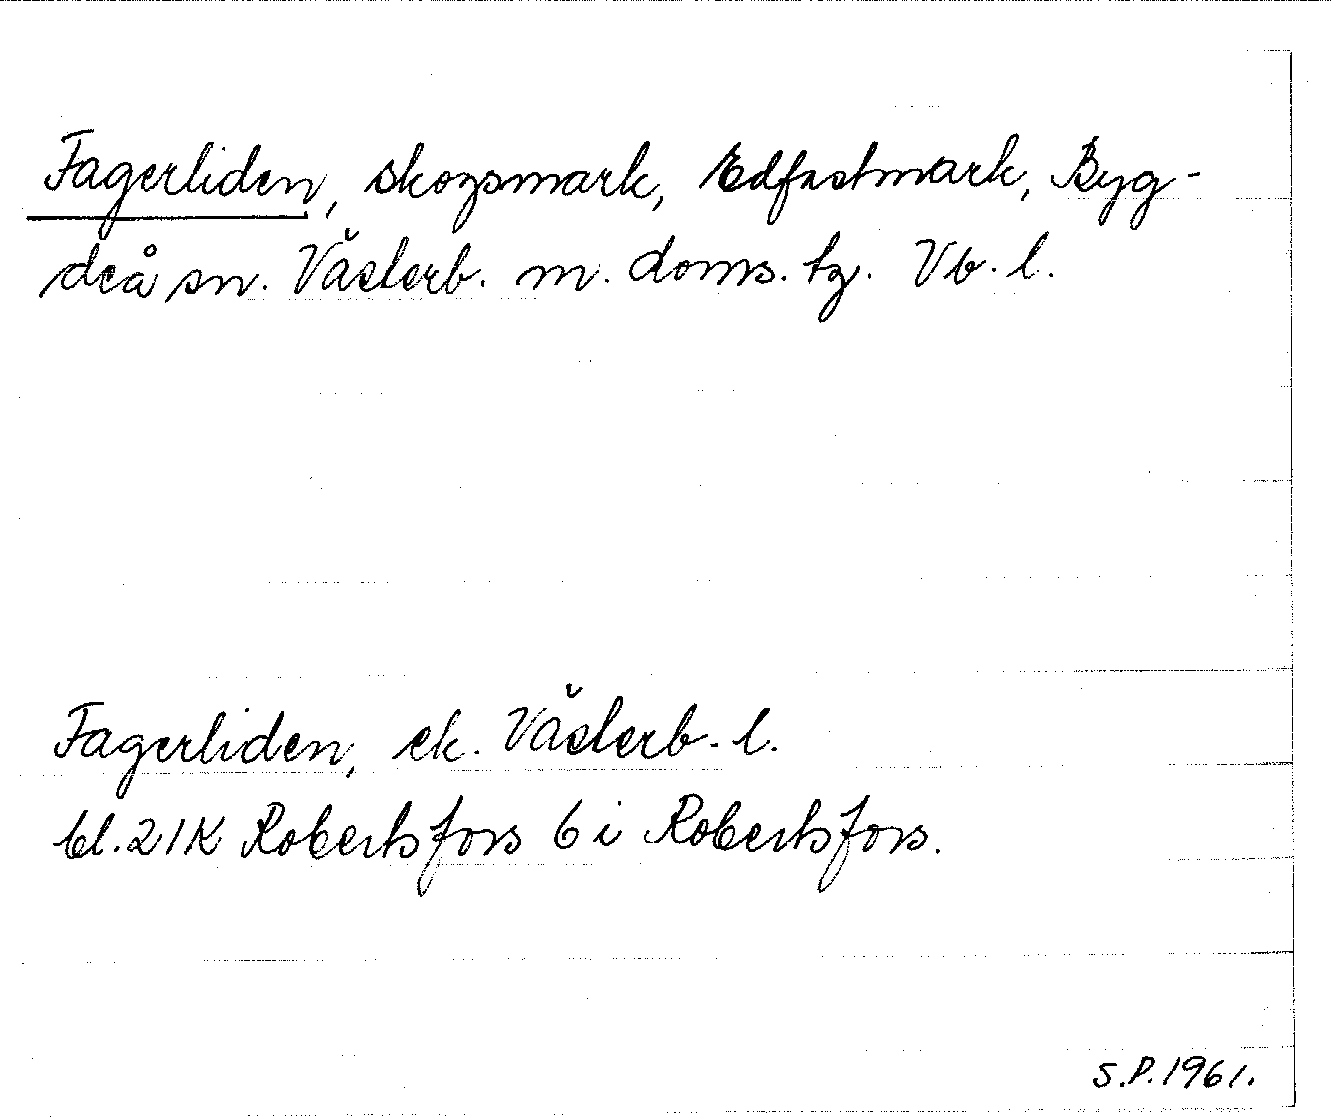 Fagerliden, skogsmark, Edfastmark, Byg-
deå sn. Västerb. m. doms. tg. Vb. l.
Fagerliden, ek. Västerb. l.
bl. 21K Robertsfors 6 i Robertsfors.
S.P. 1961.